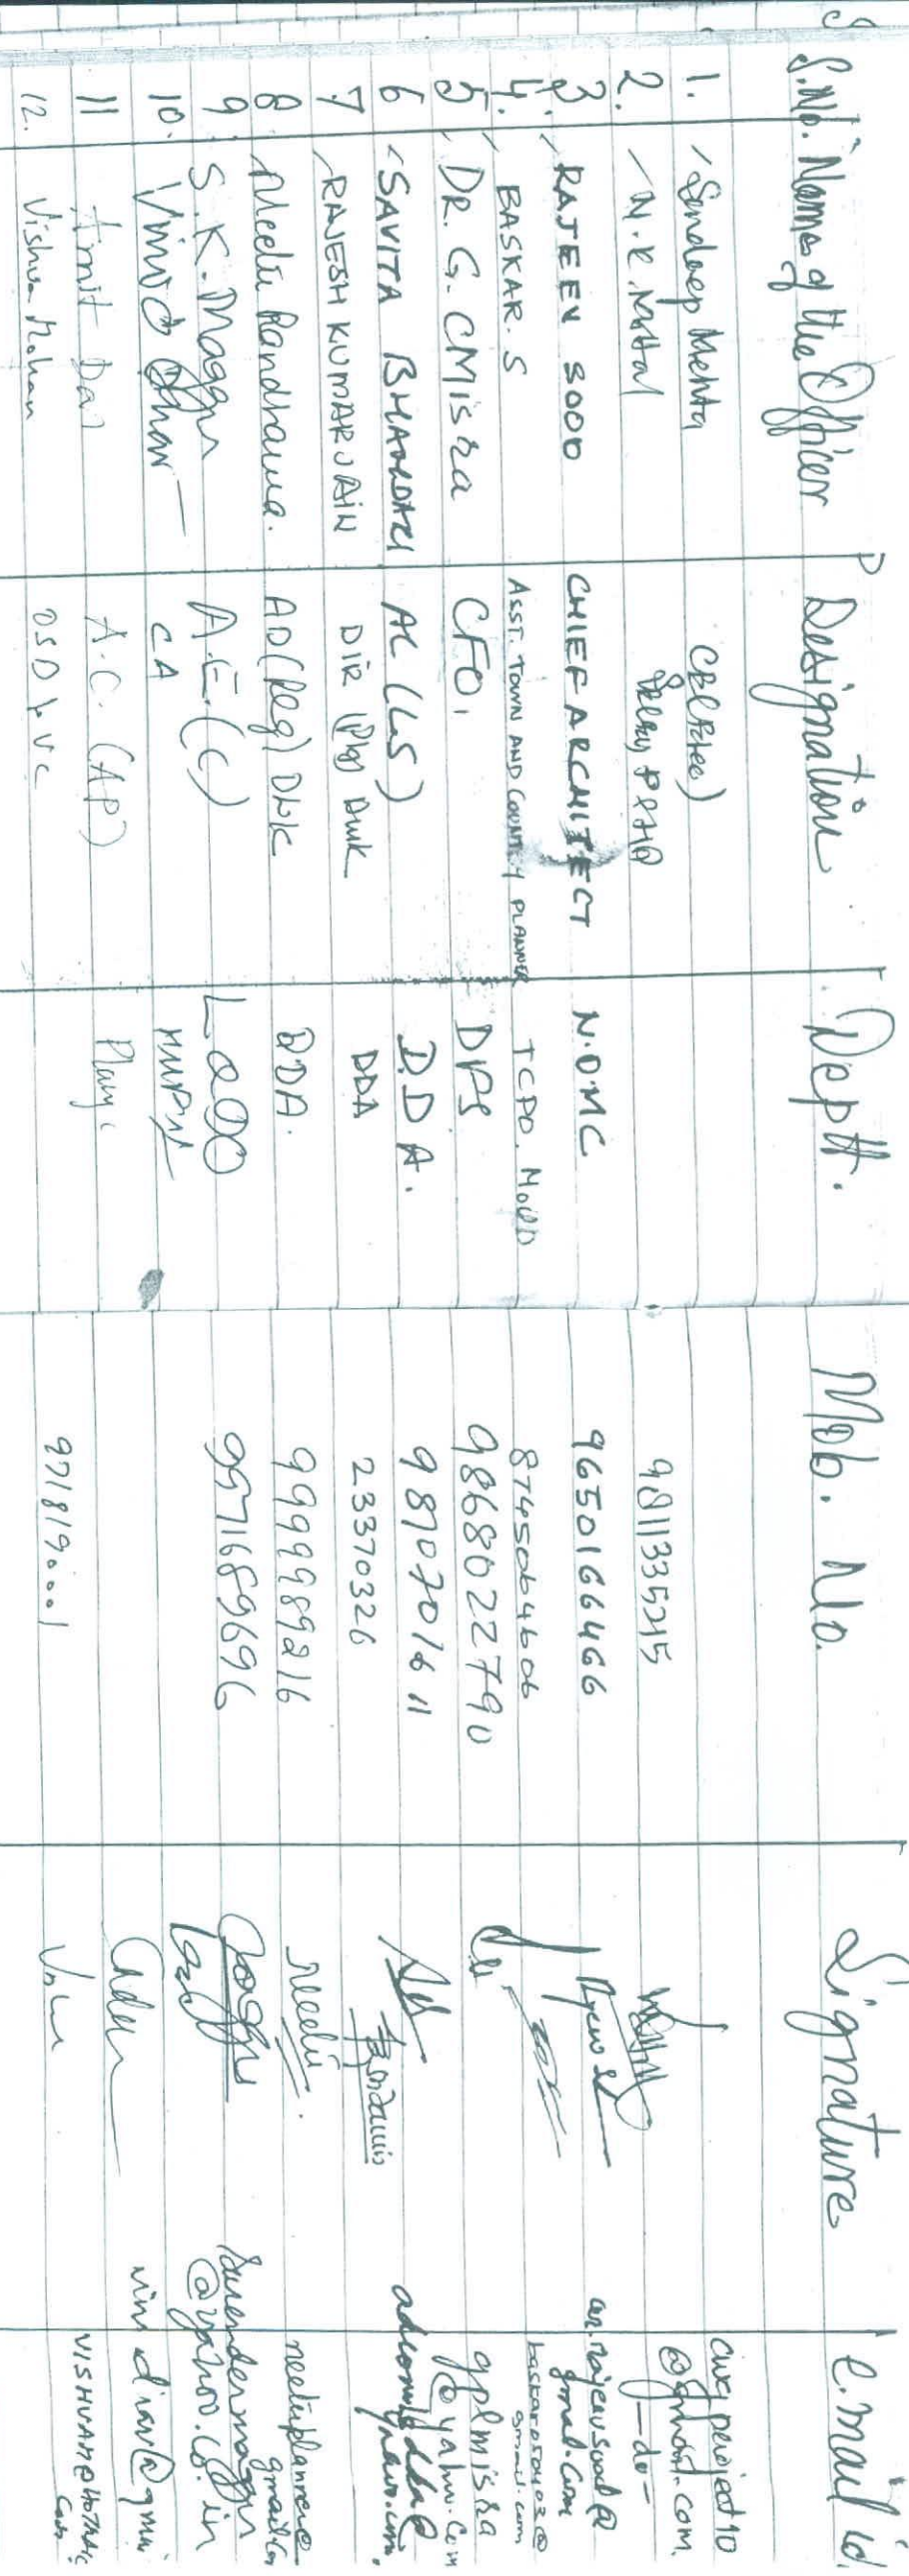 S.No. Name of the Officer Designation Deptt. Mob. No. Signature e.mail id.
1. Sandeep Mehta cwgproject10
2. N.K. Mittal Delhi 9811335215 -do-
3. RAJEEV SOOD CHIEF ARCHITECT N.DMC 9650166466 ar.rajeevsood@
gmail.com
4. BASKAR. S ASST. TOWN AND COUNTRY PLANNER TCPO. MoUD 8745064606
gmail.com
5. DR. G. C Misra CFO, DFS 9868022790 gplmisra
@yahoo.com
6 SAVITA BHANDARI AC (LS) D.D.A. 9870701611
7 RAJESH KUMAR JAIN DIR (Plg) Dwk DDA 23370326
8. Neetu Randhawa. AD(Plg) DWK DDA. 9999989216 Neetu neetuplanner@
gmail.com
9. S.K. Maggu A.E.(C) L&DO 9971689696 Surendermaggu
@yahoo.co.in
10. Vinod Dhar CA HUPW
11 Amit Das A.C. (AP)
12. Vishwa Mohan OSD to VC 9718190001 VISHVAM@HOTMAIL
com